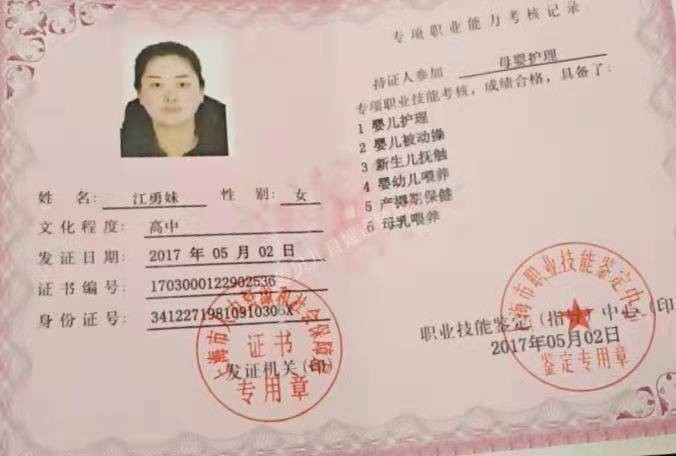 姓名: 江勇妹 性别: 女
文化程度: 高中
发证日期: 2017 年 05 月 02 日
证书编号: 1703000122902536
身份证号: 34122719810910306X
证书
发证机关(印)
专用章
专项职业能力考核记录
持证人参加 母婴护理
专项职业技能考核,成绩合格,具备了:
1 婴儿护理
2 婴儿被动操
3 新生儿抚触
4 婴幼儿喂养
5 产褥期保健
6 母乳喂养
上海市职业技能鉴定中心
职业技能鉴定(指导)中心(印)
2017年05月02日
鉴定专用章